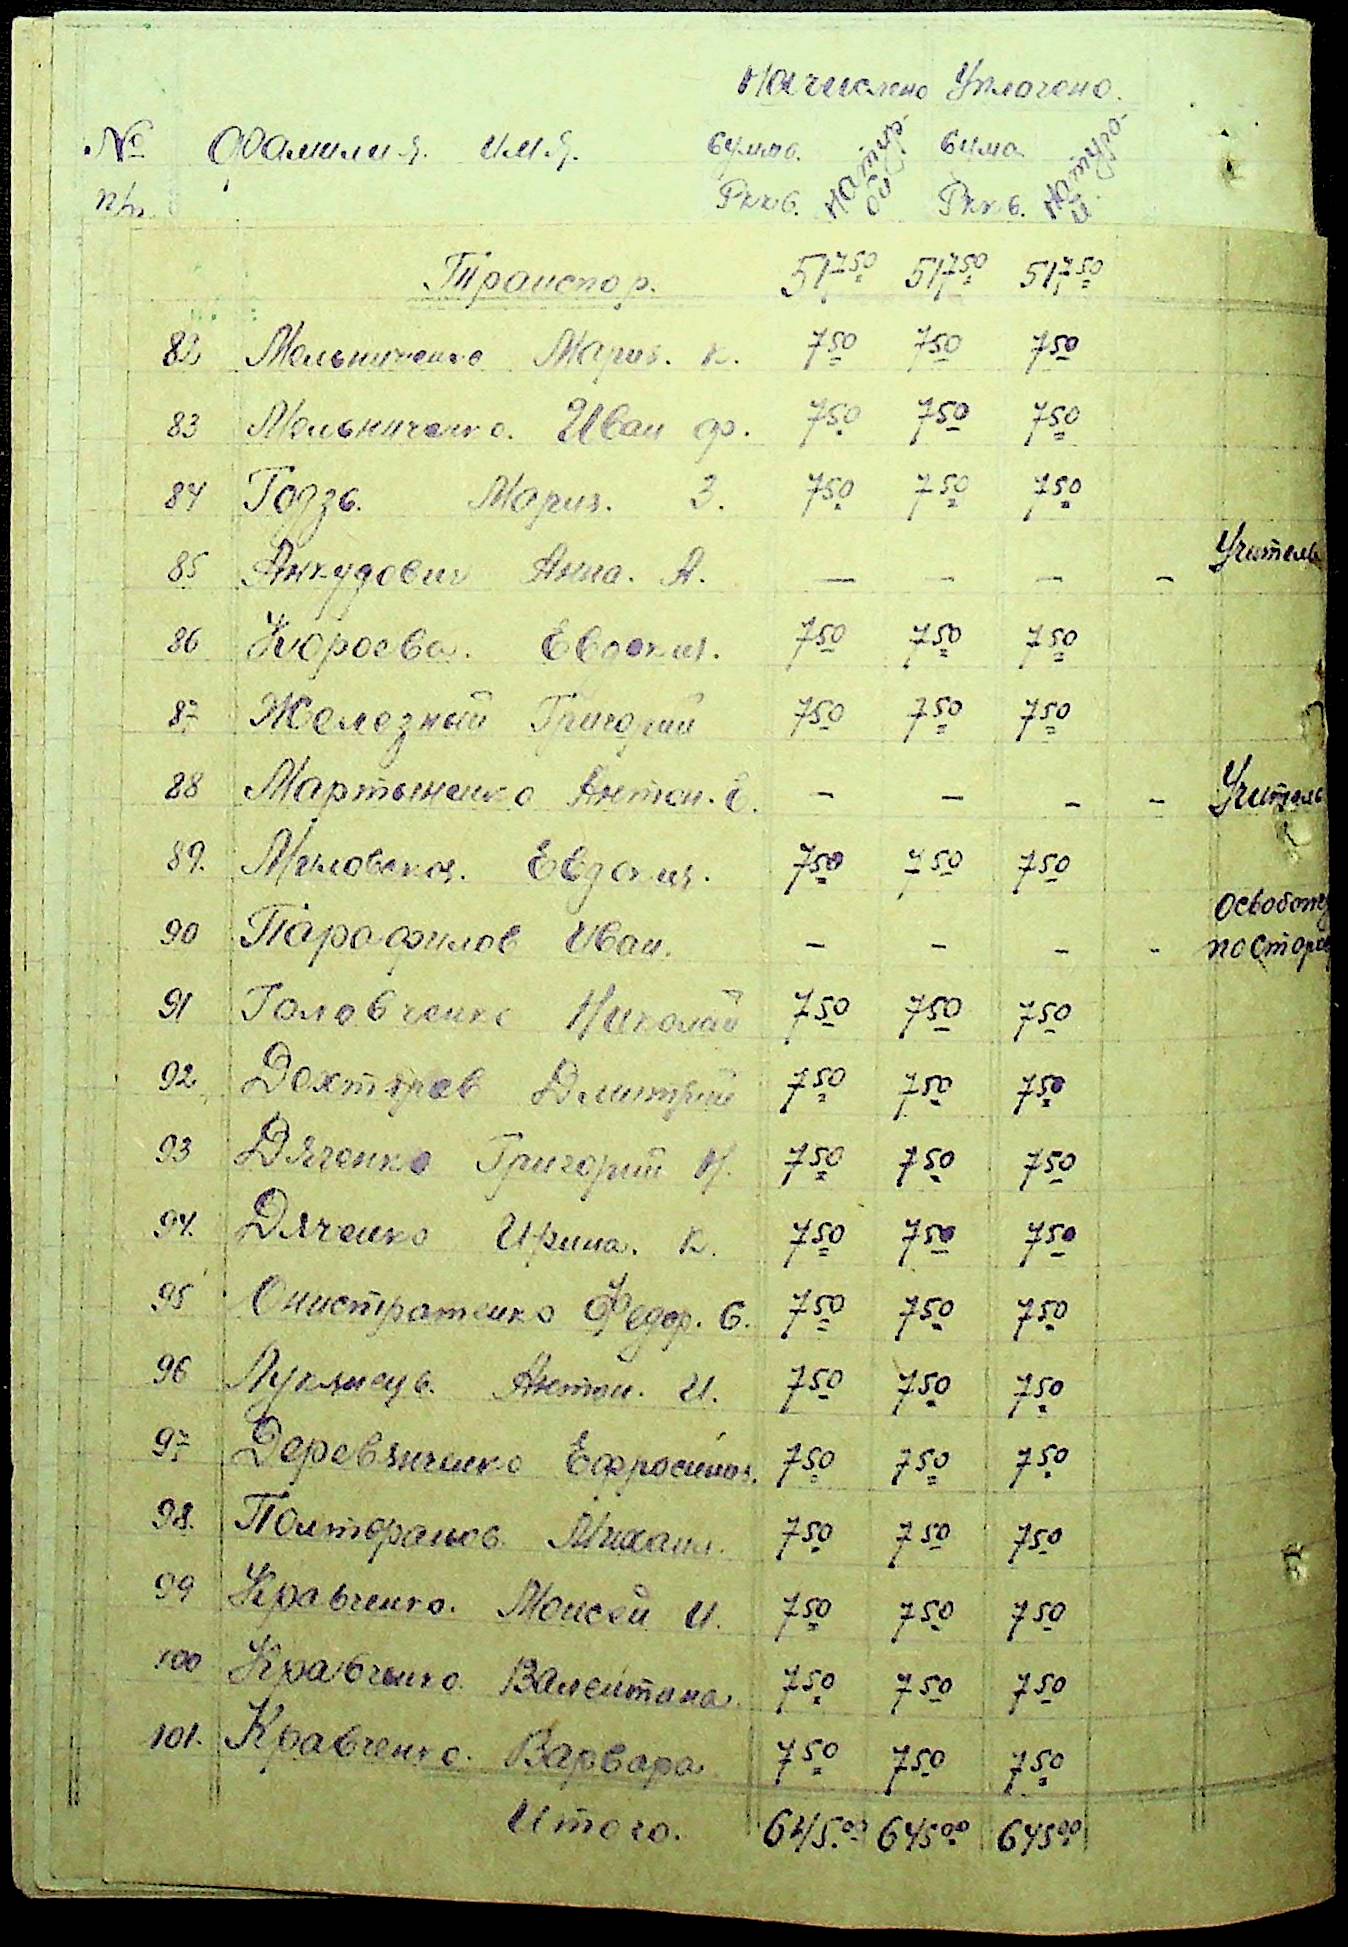 Начислено Уплочено.
№ Фамилия. имя. бумаж. натур- бума натуро-
п/п Ркк в. ой Ркк в. й.
Транспор. 517 50 517 50 517 50
82 Мельниченко Мария. К. 7 50 7 50 7 50
83 Мельниченко. Иван Ф. 7 50 7 50 7 50
84 Годзь. Мария. З. 7 50 7 50 7 50
85 Анкудович Анна. А. — — — — Учитель
86 Евдокия. 7 50 7 50 7 50
87 Железный Григорий 7 50 7 50 7 50
88 Мартыненко Антон. Е. — — — — Учитель
89. Евдокия. 7 50 7 50 7 50
90 Парафилов Иван. — — — -
91 Головченко Николай 7 50 7 50 7 50
92 Дмитрий 7 50 7 50 7 50
93 Дяченко Григорий Н. 7 50 7 50 7 50
94. Дяченко Ирина. К. 7 50 7 50 7 50
95 Онистратенко Федор. С. 7 50 7 50 7 50
96 Антон. И. 7 50 7 50 7 50
97 Деревянченко Ефросиния. 7 50 7 50 7 50
98. Михаил. 7 50 7 50 7 50
99 Кравченко. Моисей И. 7 50 7 50 7 50
100 Кравченко Валентина 7 50 7 50 7 50
101. Кравченко. Варвара 7 50 7 50 7 50
Итого. 645.00 645 00 645 00